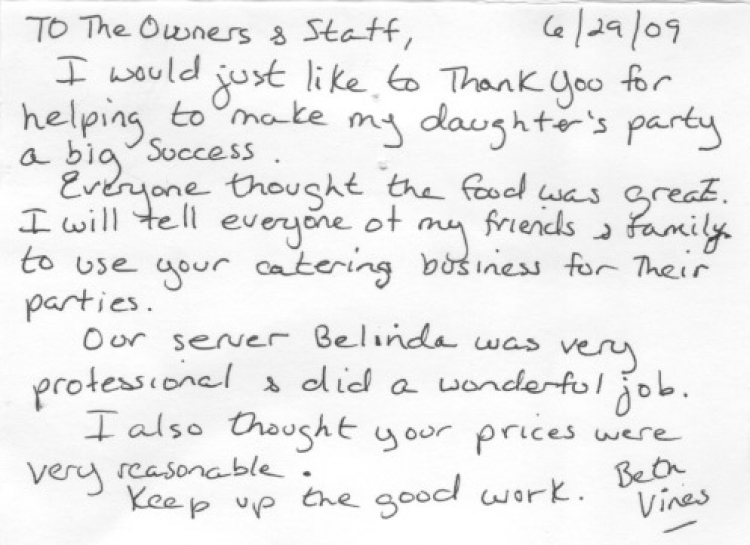 To The Owners & Staff, 6/29/09
I would just like to Thank You for
helping to make my daughter's party
a big Success.
Everyone thought the food was great.
I will tell everyone of my friends & family
to use your catering business for Their
parties.
Our server Belinda was very
professional & did a wonderful job.
I also thought your prices were
very reasonable.
Keep up the good work. Beth
Vines